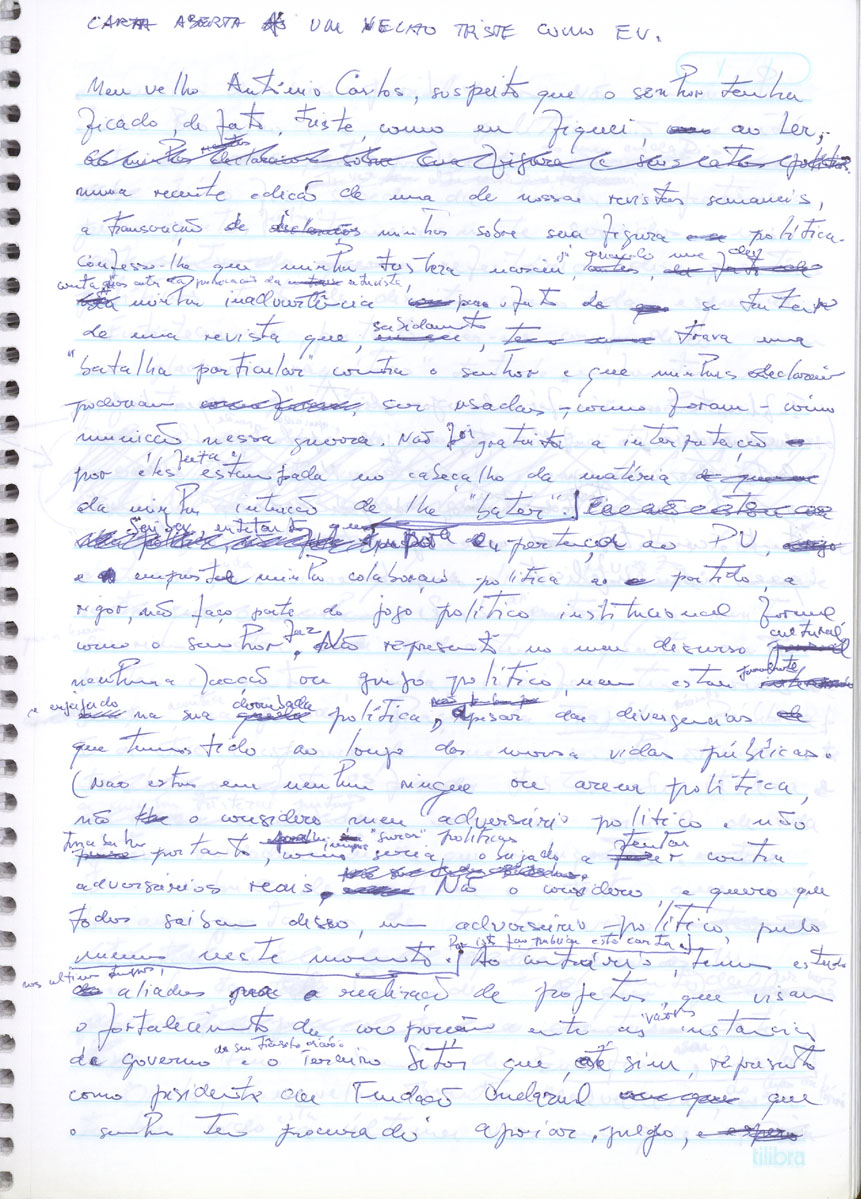 CARTA ABERTA A UM VELHO TRISTE COMO EU.
Meu velho Antônio Carlos, suspeito que o senhor tenha
ficado, de fato, triste, como eu fiquei ao ler,
numa recente edição de uma de nossas revistas semanais,
a transcrição de minhas sobre sua figura política.
Confesso-lhe que minha tristeza nasceu, já quando me dei
conta, antes da publicação da entrevista,
da minha inadvertência pelo fato de se tratar
de uma revista que, sabidamente, trava uma
"batalha particular" contra o senhor e que minhas declarações
poderiam ser usadas - como foram - como
munição nessa guerra. Não foi gratuita a interpretação
por eles feita e estampada no cabeçalho da matéria
da minha intenção de lhe "bater".
entretanto, que pertença ao PV,
e empreste minha colaboração política ao partido, a
rigor, não faço parte do jogo político institucional formal
como o senhor faz. Não represento no meu discurso cultural
nenhuma facção ou grupo político, nem estou
e engajado na sua derrubada política, apesar das divergências
que temos tido ao longo das nossas vidas públicas.
(Não estou em nenhum ringue ou arena política,
não o considero meu adversário político e não
portanto, "surrar" políticos como seria, obrigado a tentar contra
adversários reais. Não o considero, e quero que
todos saibam disso, um adversário político, pelo
menos neste momento. Por isto faço pública esta carta. Ao contrário, temos estado
nos últimos tempos,
aliados a realização de projetos, que visam
o fortalecimento da cooperação entre as várias instâncias
de governo e o Terceiro Setor que, sim, represento
como presidente da Fundação Ondazul que
o senhor tem procurado apoiar, julgo,
tilibra